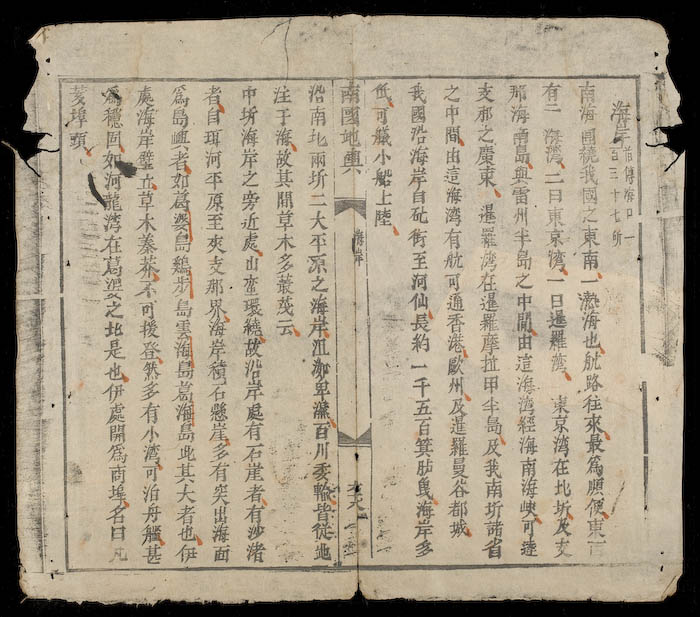 海岸
百三十七所
南海圍繞我國之東南一熱海也航路往來最爲順便東
有二海灣一曰東京灣一曰暹羅灣 東京灣在北圻及支
那海南島與雷州半島之中間由這海湾經海南海峽可達
支那之廣東 暹羅灣在暹羅摩拉甲半島及我南圻諸省
之中間由這海湾有航可通香港歐州及暹羅曼谷都城
我國沿海岸自砒街至河仙長約一千五百箕海岸多
低可艤小船上陸
南國地輿
海岸
沿南北兩圻二大平源之海岸沮洳卑濕百川委輸皆從此
注于海故其間草木多叢茂云
中圻海岸之旁近處山巒環繞故沿岸處有石崖者有沙渚
者自珥河平原至夾支那界海岸積石懸崖多有突出海面
爲島嶼者如葛婆島鷄步島雲海島葛海島此其大者也伊
處海岸壁立草木蓁莽不可援登然多有小湾可泊舟艦甚
爲穩固如河龍湾在葛婆之地是也伊處開爲商埠名曰
菱埠頭